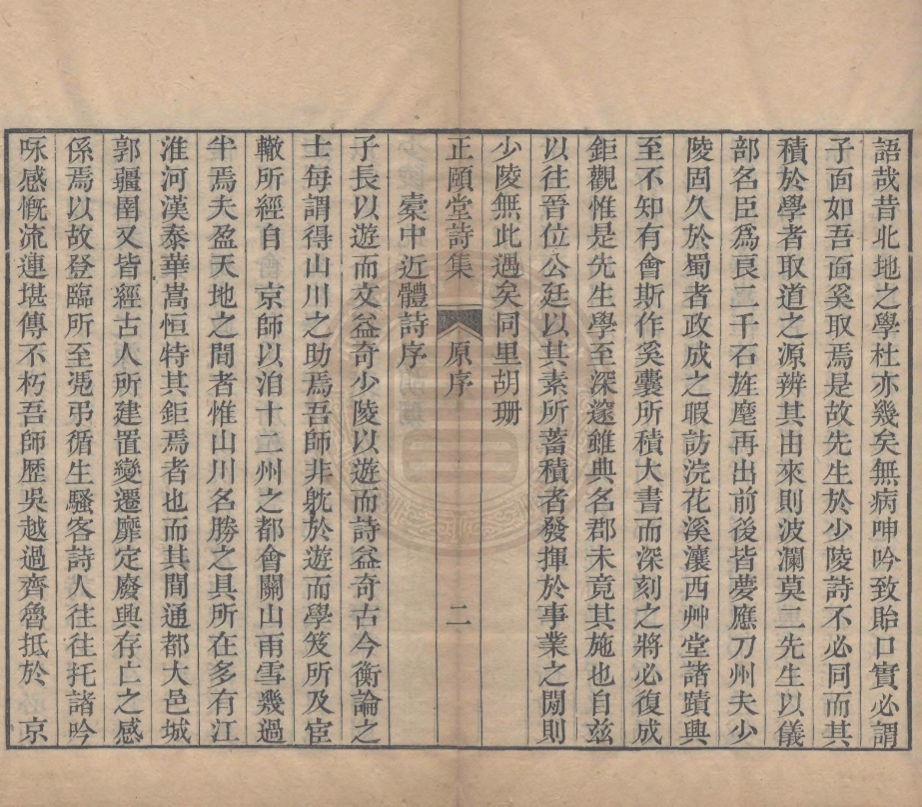 語哉昔北地之學杜亦幾矣無病呻吟致貽口實必謂
子面如吾面奚取焉是故先生於少陵詩不必同而其
積於學者取道之源辨其由來則波瀾莫二先生以儀
部名臣爲良二千石旌麾再出前後皆夢應刀州夫少
陵固久於蜀者政成之暇訪浣花溪瀼西艸堂諸蹟興
至不知有會斯作奚囊所積大書而深刻之將必復成
鉅觀惟是先生學至深邃雖典名郡未竟其施也自兹
以往晉位公廷以其素所蓄積者發揮於事業之閒則
少陵無此遇矣同里胡珊
正頤堂詩集 原序 二
橐中近體詩序
子長以遊而文益奇少陵以遊而詩益奇古今衡論之
士每謂得山川之助焉吾師非躭於遊而學笈所及宦
轍所經自 京師以洎十二州之都會關山雨雪幾過
半焉夫盈天地之間者惟山川名勝之具所在多有江
淮河漢泰華嵩恒特其鉅焉者也而其間通都大邑城
郭疆圉又皆經古人所建置變遷靡定廢興存亡之感
係焉以故登臨所至凴弔循生騷客詩人往往托諸吟
咏感慨流連堪傳不朽吾師歷吳越過齊魯抵於 京